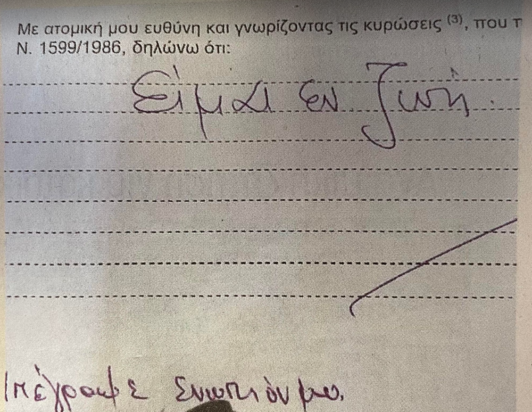 Με ατομική μου ευθύνη και γνωρίζοντας τις κυρώσεις (3), που τ
Ν. 1599/1986, δηλώνω ότι:
Είμαι εν ζωή.
ενωπιόν μου.